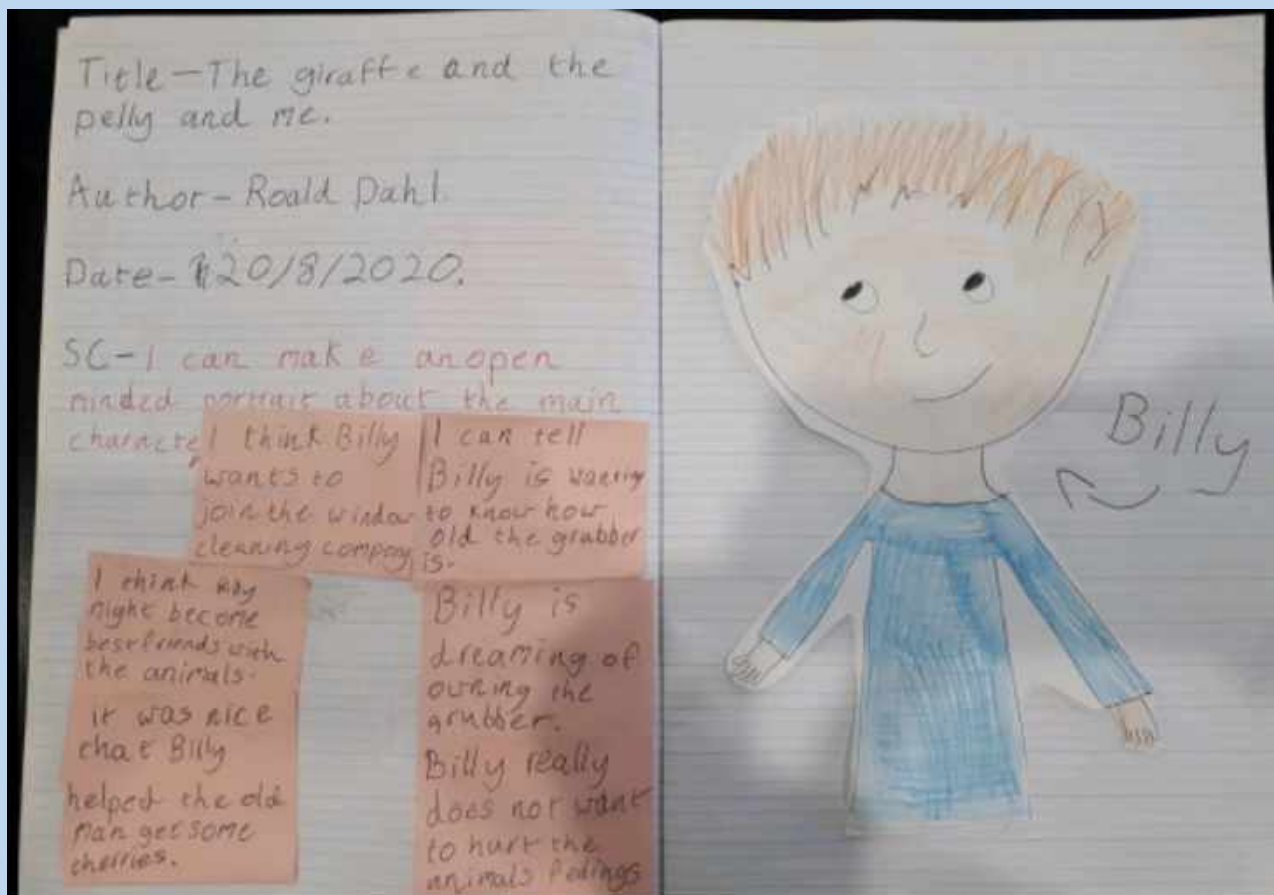 Title-The giraffe and the
pelly and me.
Author-Roald Dahl.
Date-20/8/2020.
SC-I can make an open
minded portrait about the main
character
I think Billy
wants to
join the window
cleaning company
I can tell
Billy is
to know how
old the grubber
is.
I think
might become
best friends with
the animals.
it was nice
that Billy
helped the old
man get some
cherries.
Billy is
dreaming of
owning the
grubber.
Billy really
does not want
to hurt the
animals
Billy